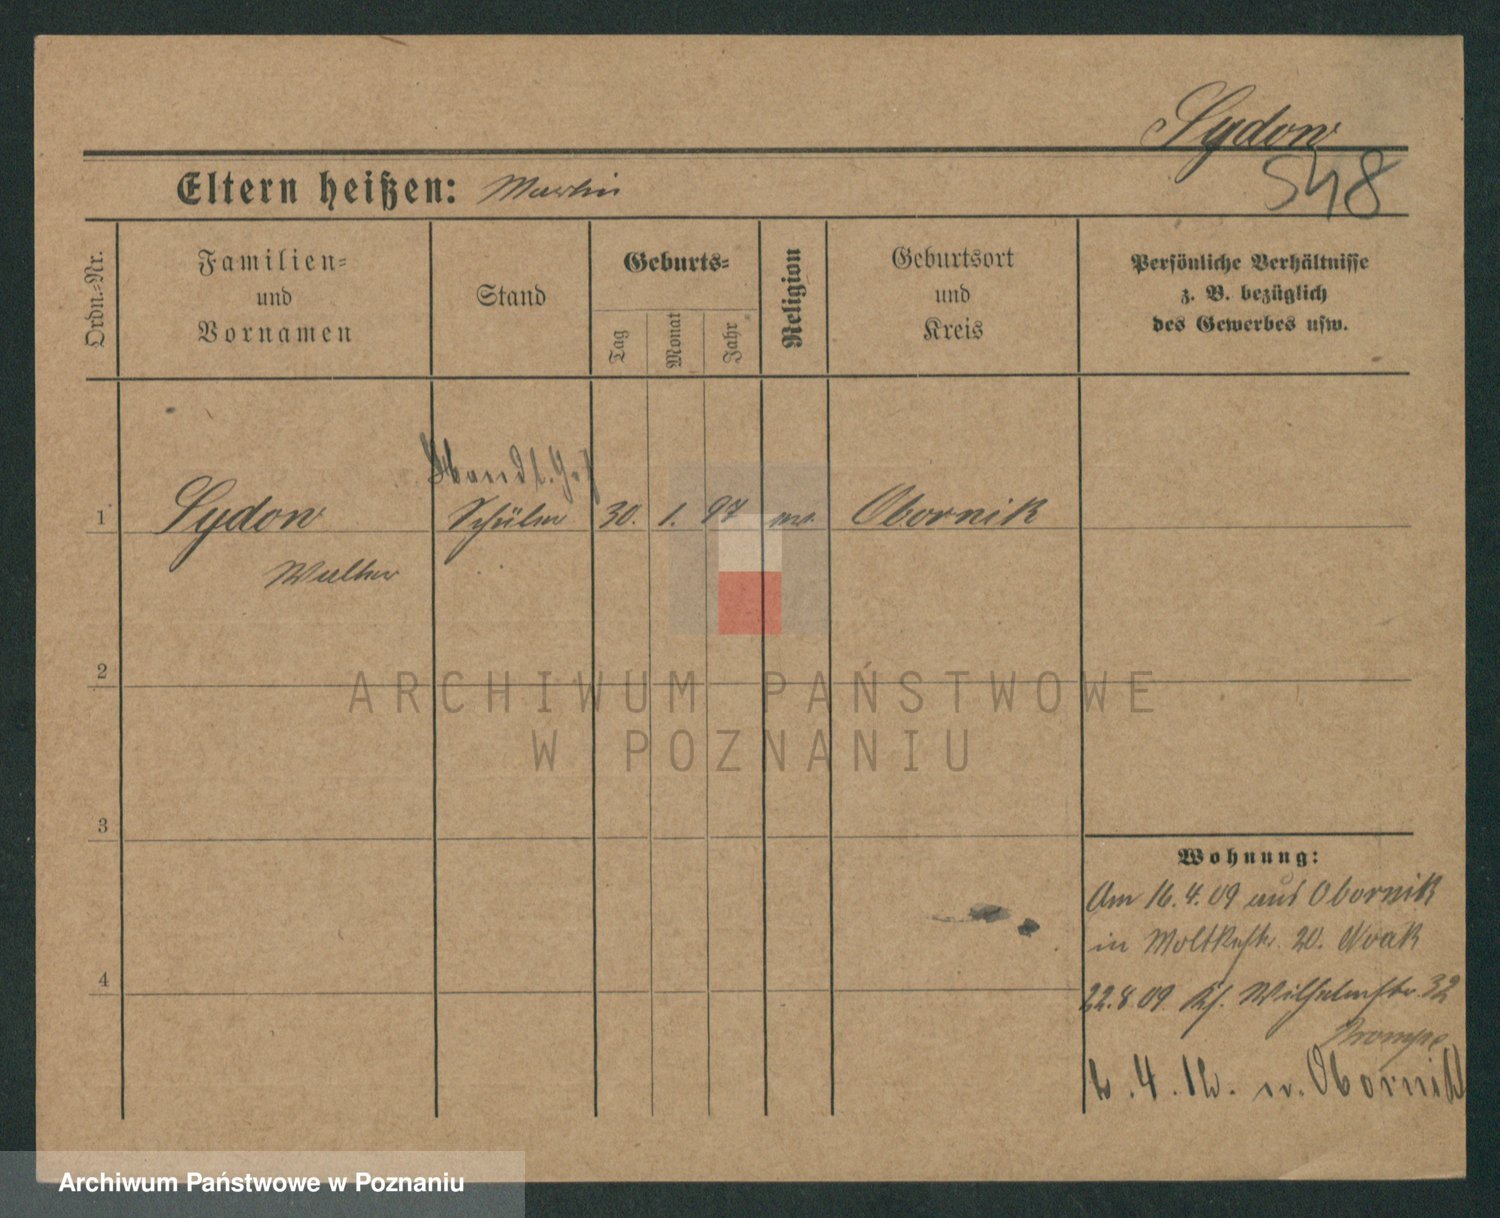 Sydow
548
Eltern heißen: Martin
Ordn.-Nr.
Familien-
und
Vornamen
Stand
Geburts-
Tag
Monat
Jahr
Religion
Geburtsort
und
Kreis
Persönliche Verhältnisse
z. B. bezüglich
des Gewerbes usw.
Handl. Geh
1 Sydow Schüler 30. 1. 97 ev. Obornik
Walther
2
3
4
Wohnung:
Am 16.4.09 aus Obornik
in Moltkestr. 20. Noak
22.8.09 Wilhelmstr. 32
2.4.12. n. Obornik
ARCHIWUM PAŃSTWOWE
W POZNANIU
Archiwum Państwowe w Poznaniu